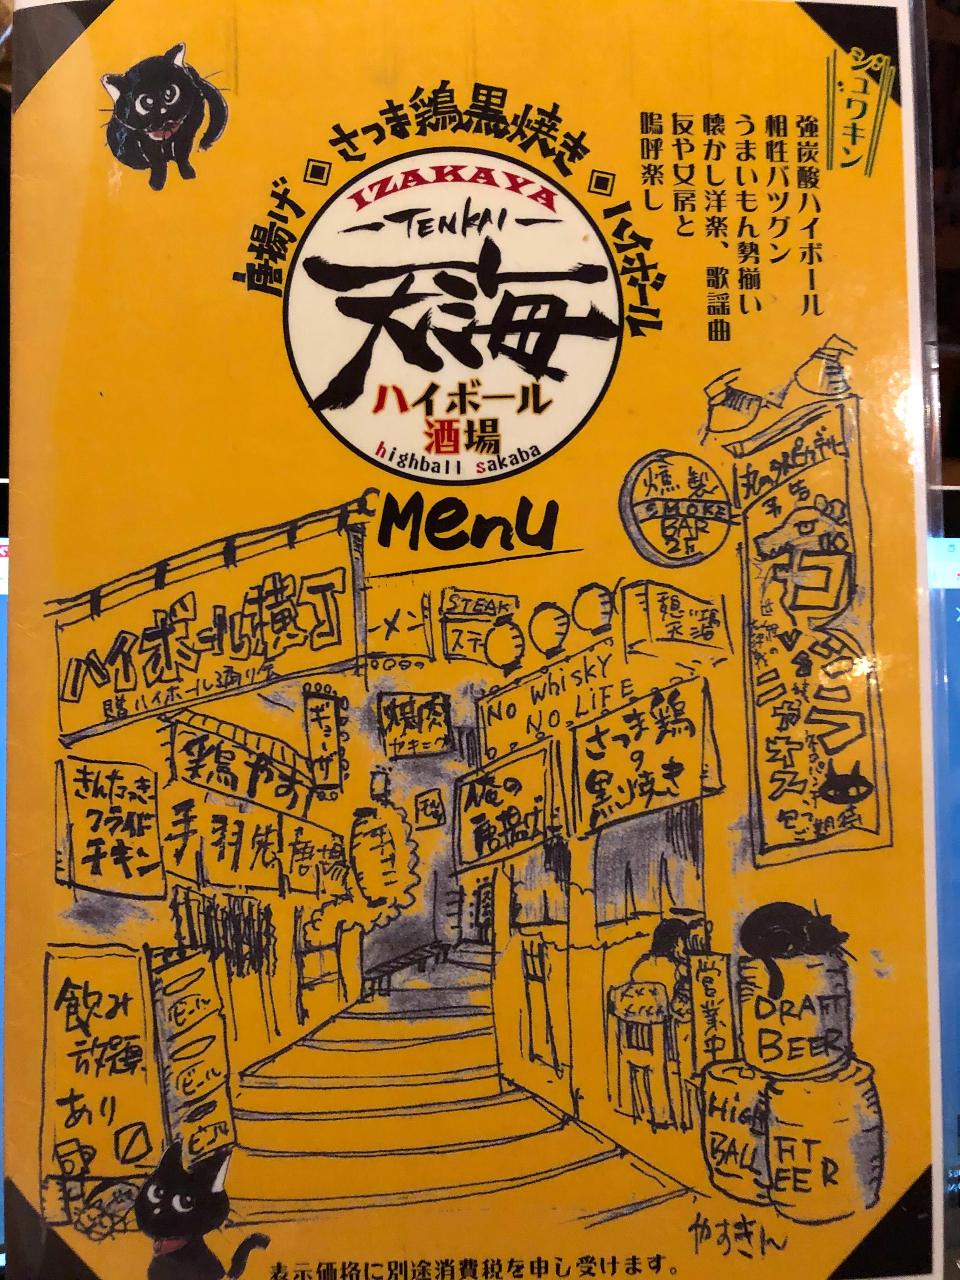 シュワキン
強炭酸ハイボール
相性バツグン
うまいもん勢揃い
懐かし洋楽、歌謡曲
友や女房と
嗚呼楽し
唐揚げ
さつま鶏黒焼き
ハイボール
IZAKAYA
TENKAI
天海
ハイボール
酒場
highball sakaba
Menu
燻製
SMOKE
BAR
2F
ハイボール横丁
ーメン
STEAK
ステー
NO WHISKY
NO LIFE
ギョーザ
焼肉
ヤキニク
さつま鶏
の
黒焼き
俺の
唐揚げ
鶏やす
手羽先
唐揚
きんたっき
フライド
チキン
飲み
放題
あり
ビール
ビール
ビール
営業中
DRAFT
BEER
HIGH
BALL
FT
EER
やすきん
表示価格に別途消費税を申し受けます。